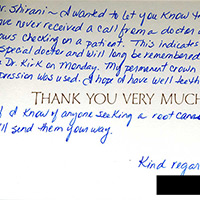 r. Shirani ~ I wanted to let you know
ve never received a call from a doctor
ous checking on a patient. This indicates
special doctor and will long be remembered
Dr. Kirk on Monday. My permanent crown
pression was used. I hope I have well
THANK YOU VERY MUCH
f I know of anyone seeking a root cana
ll send them your way.
Kind regar